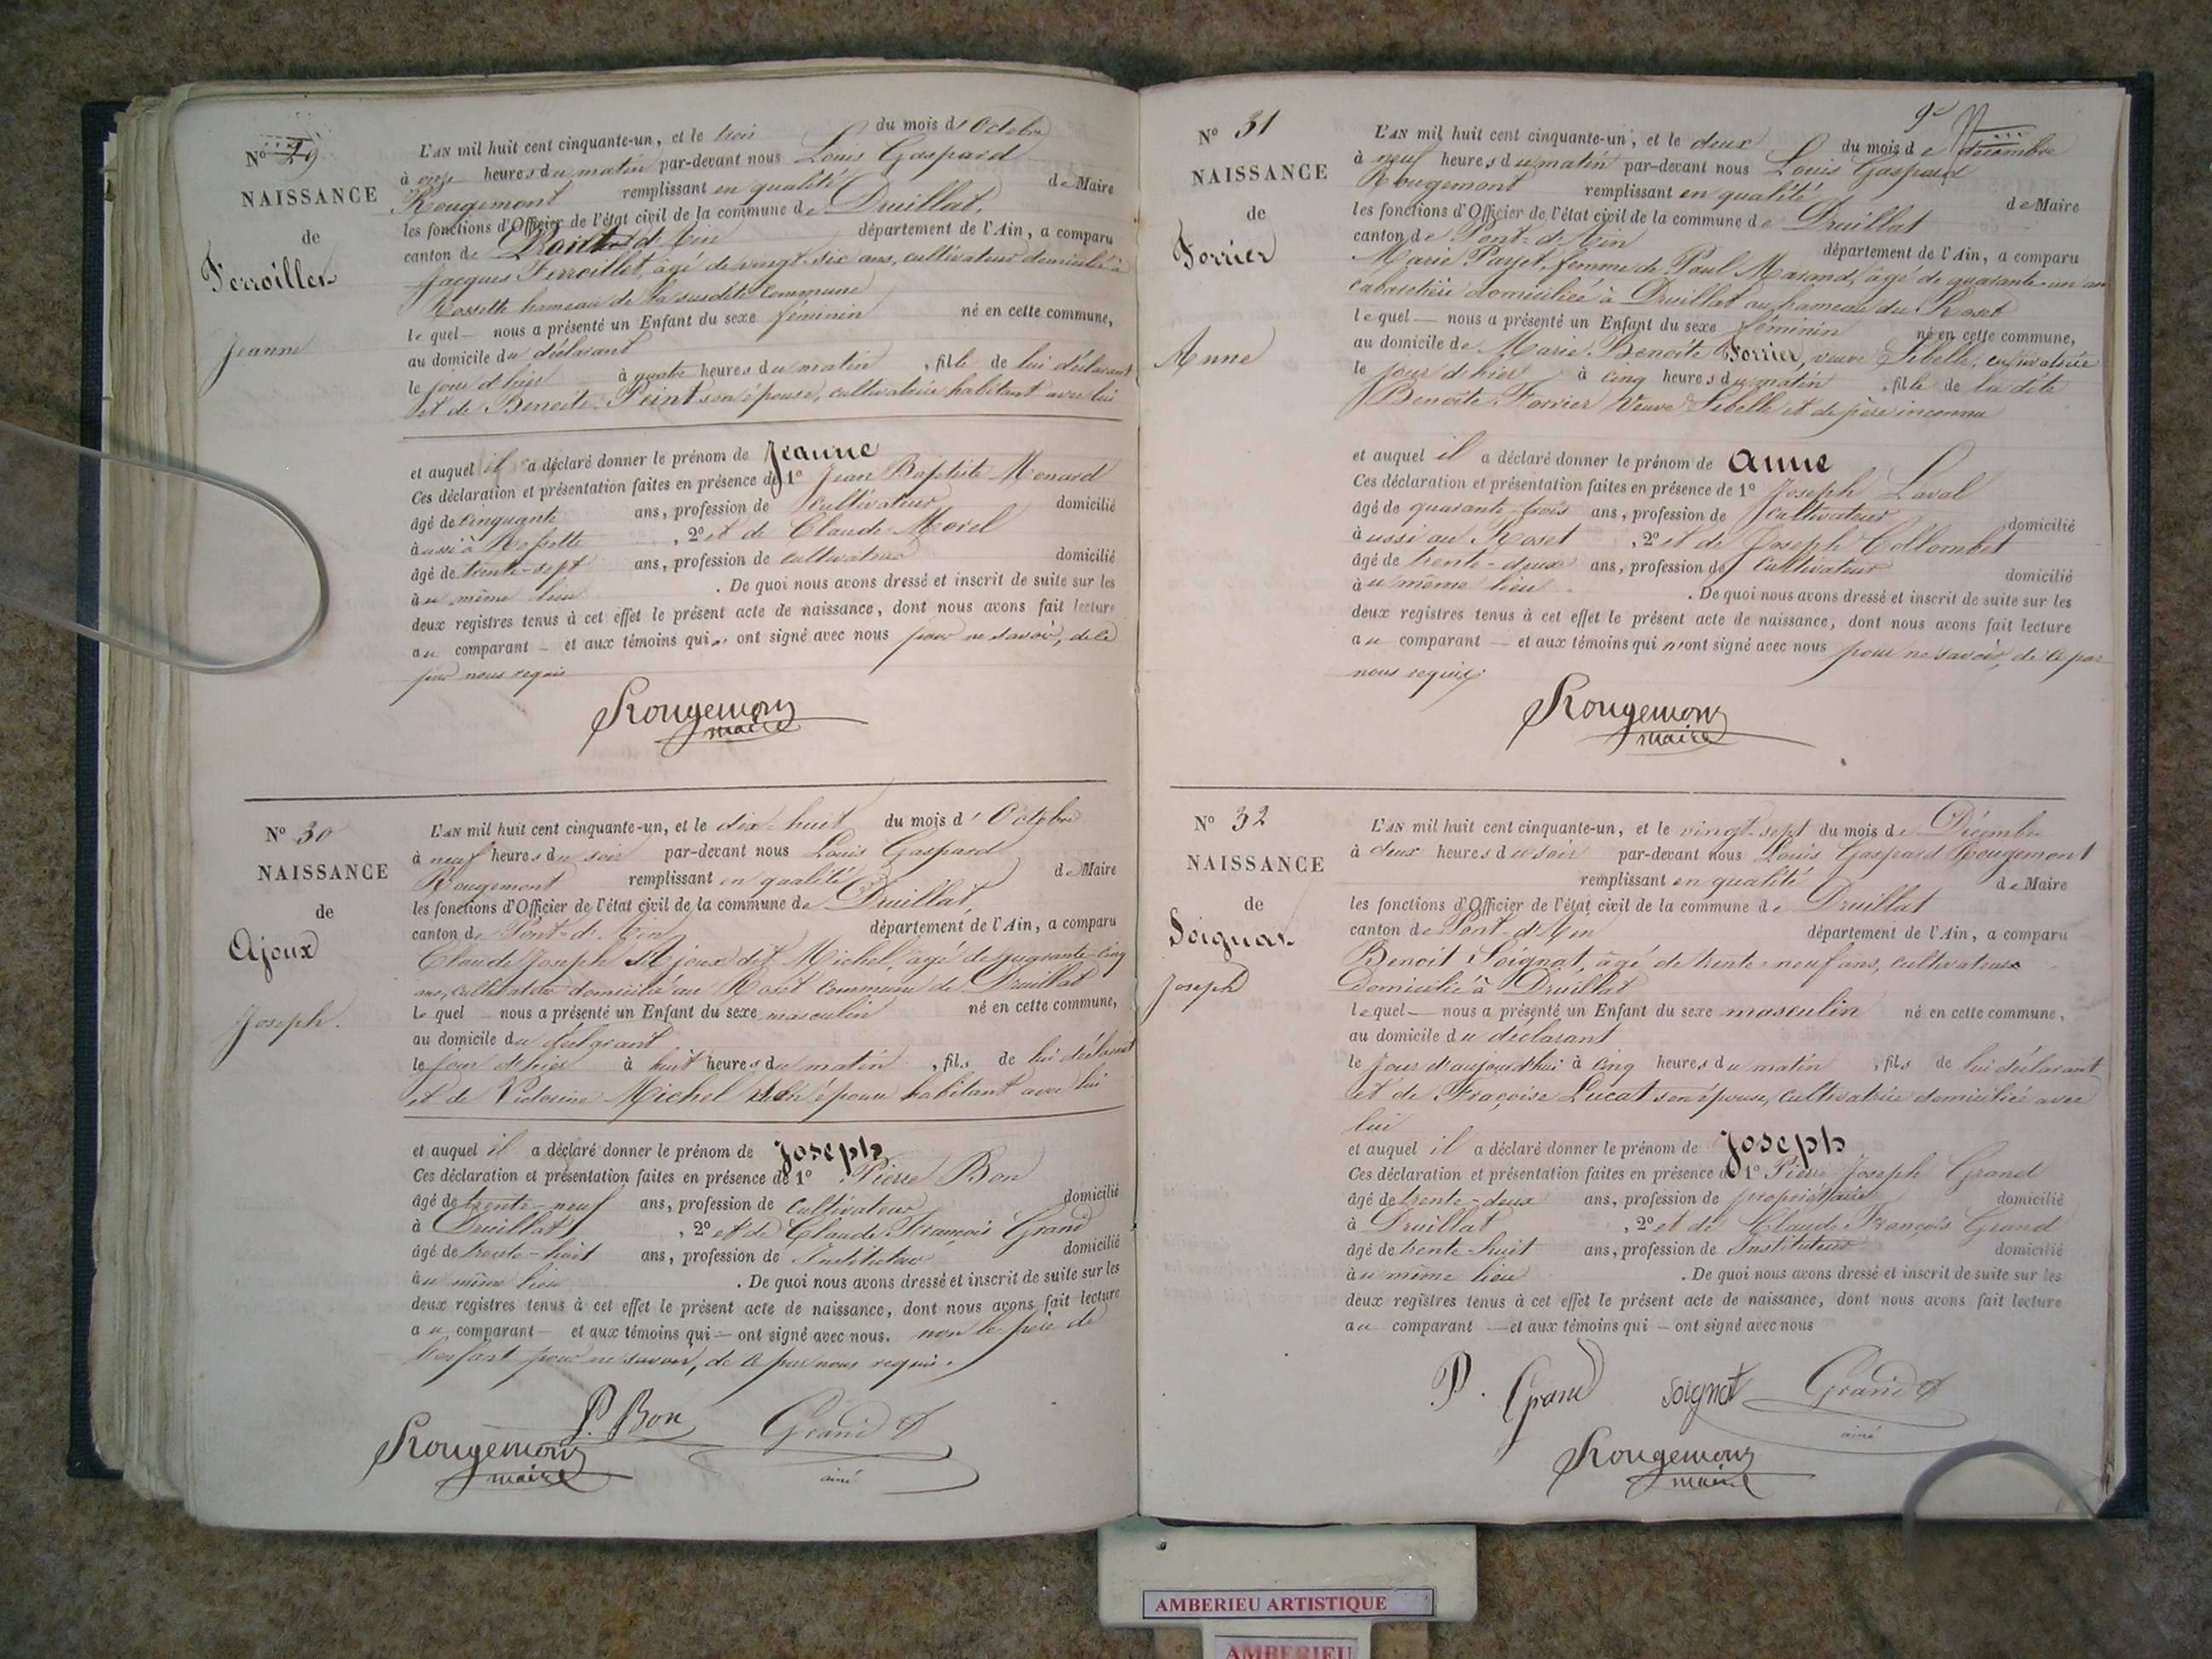 N° 29
NAISSANCE
de
Ferroillet
Jeanne
L'AN mil huit cent cinquante-un, et le trois du mois d'Octobre
à onze heures du matin par-devant nous Louis Gaspard
Rougemont remplissant en qualité de Maire
les fonctions d'Officier de l'état civil de la commune de Druillat,
canton de Pont-d'Ain département de l'Ain, a comparu
Jacques Ferroillet, âgé de vingt-six ans, cultivateur domicilié à
Rossette hameau de la susdite commune
lequel — nous a présenté un Enfant du sexe féminin né en cette commune,
au domicile du déclarant
le jour d'hier à quatre heures du matin, fille de lui déclarant
et de Benoite Peint son épouse, cultivatrice habitant avec lui
et auquel il a déclaré donner le prénom de Jeanne
Ces déclaration et présentation faites en présence de 1° Jean Baptiste Monard
âgé de cinquante ans, profession de cultivateur domicilié
à aussi à Rossette, 2° et de Claude Morel
âgé de trente-sept ans, profession de cultivateur domicilié
au même lieu. De quoi nous avons dressé et inscrit de suite sur les
deux registres tenus à cet effet le présent acte de naissance, dont nous avons fait lecture
au comparant — et aux témoins qui n'ont signé avec nous pour ne savoir, de ce
par nous requis
Rougemont
maire
N° 30
NAISSANCE
de
Ajoux
Joseph.
L'AN mil huit cent cinquante-un, et le dix-huit du mois d'Octobre
à neuf heures du soir par-devant nous Louis Gaspard
Rougemont remplissant en qualité de Maire
les fonctions d'Officier de l'état civil de la commune de Druillat,
canton de Pont-d'Ain département de l'Ain, a comparu
Claude Joseph Ajoux dit Michel, âgé de quarante-cinq
ans, cultivateur domicilié au Roset commune de Druillat
lequel nous a présenté un Enfant du sexe masculin né en cette commune,
au domicile du déclarant
le jour d'hier à huit heures du matin, fils de lui déclarant
et de Victorine Michel son épouse habitant avec lui
et auquel il a déclaré donner le prénom de Joseph
Ces déclaration et présentation faites en présence de 1° Pierre Bon
âgé de trente-neuf ans, profession de cultivateur domicilié
à Druillat, 2° et de Claude François Grand
âgé de trente-huit ans, profession de Instituteur domicilié
au même lieu. De quoi nous avons dressé et inscrit de suite sur les
deux registres tenus à cet effet le présent acte de naissance, dont nous avons fait lecture
au comparant — et aux témoins qui — ont signé avec nous. non le père de
l'enfant pour ne savoir, de ce par nous requis.
P. Bon Grand
Rougemont
maire aîné
N° 31
NAISSANCE
de
Forrier
Anne
L'AN mil huit cent cinquante-un, et le deux du mois de décembre
à neuf heures du matin par-devant nous Louis Gaspard
Rougemont remplissant en qualité de Maire
les fonctions d'Officier de l'état civil de la commune de Druillat
canton de Pont-d'Ain département de l'Ain, a comparu
Marie Payet, femme de Paul Marand, âgé de quarante-un an
cabaretière domiciliée à Druillat au hameau du Roset
lequel — nous a présenté un Enfant du sexe féminin né en cette commune,
au domicile de Marie Benoîte Forrier, veuve Sibelle, cultivatrice
le jour d'hier à cinq heures du matin, fille de la dite
Benoîte Forrier Veuve Sibelle et de père inconnu
et auquel il a déclaré donner le prénom de Anne
Ces déclaration et présentation faites en présence de 1° Joseph Laval
âgé de quarante-trois ans, profession de cultivateur domicilié
à aussi au Roset, 2° et de Joseph Collombet
âgé de trente-deux ans, profession de cultivateur domicilié
au même lieu. De quoi nous avons dressé et inscrit de suite sur les
deux registres tenus à cet effet le présent acte de naissance, dont nous avons fait lecture
au comparant — et aux témoins qui n'ont signé avec nous pour ne savoir, de ce par
nous requis
Rougemont
maire
N° 32
NAISSANCE
de
Soignat
Joseph
L'AN mil huit cent cinquante-un, et le vingt-sept du mois de Décembre
à deux heures du soir par-devant nous Louis Gaspard Rougemont
remplissant en qualité de Maire
les fonctions d'Officier de l'état civil de la commune de Druillat
canton de Pont-d'Ain département de l'Ain, a comparu
Benoit Soignat, âgé de trente-neuf ans, cultivateur
domicilié à Druillat
lequel — nous a présenté un Enfant du sexe masculin né en cette commune,
au domicile du déclarant
le jour d'aujourd'hui à cinq heures du matin, fils de lui déclarant
et de Fraçoise Lucat son épouse, cultivatrice domiciliée avec
lui
et auquel il a déclaré donner le prénom de Joseph
Ces déclaration et présentation faites en présence de 1° Pierre Joseph Grand
âgé de trente-deux ans, profession de propriétaire domicilié
à Druillat, 2° et de Claude François Grand
âgé de trente-huit ans, profession de Instituteur domicilié
au même lieu. De quoi nous avons dressé et inscrit de suite sur les
deux registres tenus à cet effet le présent acte de naissance, dont nous avons fait lecture
au comparant — et aux témoins qui — ont signé avec nous
P. Grand Soignat Grand
aîné
Rougemont
maire
AMBERIEU ARTISTIQUE
AMBERIEU